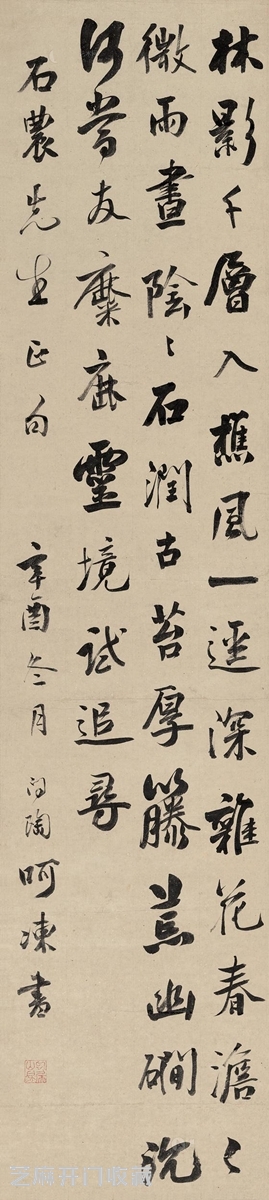 林影千層入樵風一逕深雜花春澹〻
微雨晝陰〻石潤古苔厚籐荒幽磵沉
何嘗友麋鹿靈境試追尋
石農先生正句 辛酉冬月 问陶呵凍書
芝麻开门收藏